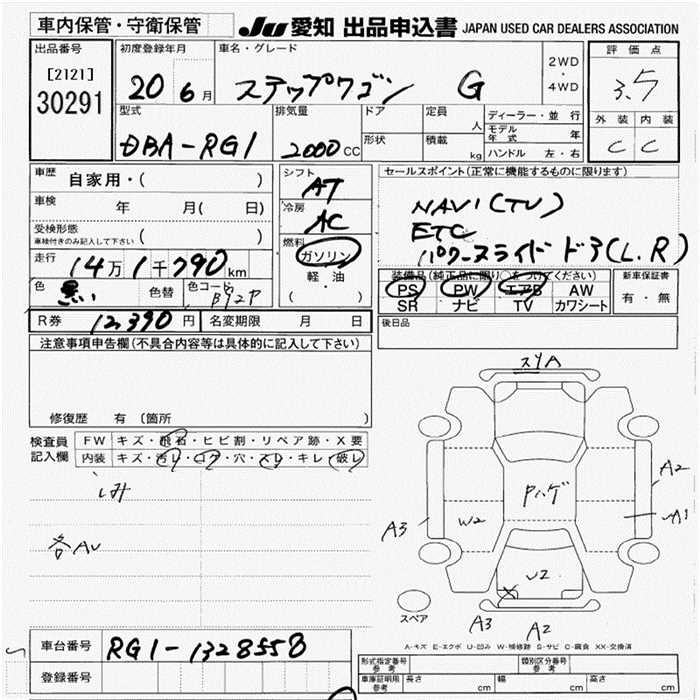 車内保管・守衛保管
JU 愛知 出品申込書 JAPAN USED CAR DEALERS ASSOCIATION
出品番号
[2121]
30291
初度登録年月
20 年 6 月
車名・グレード
ステップワゴン G
2WD
・
4WD
評価点
3.5
外装 内装
C C
型式
DBA-RG1
排気量
2000 CC
ドア
形状
定員 人
積載 kg
ディーラー・並行
モデル年式 年
ハンドル 左・右
車歴 自家用・( )
車検 年 月( 日)
受検形態
車検付きのみ記入して下さい ( )
走行 14万1千790 km
色 黒い 色替 色コード B92P
シフト AT
冷房 AC
燃料 ガソリン
軽・油
( ・ )
セールスポイント(正常に機能するものに限ります)
NAVI(TV)
ETC
パワースライドドア(L.R)
装備品(純正品に限り○をつけてください)
PS PW エアB AW
SR ナビ TV カワシート
新車保証書
有・無
R券 12,390 円 名変期限 月 日
後日品
注意事項申告欄(不具合内容等は具体的に記入して下さい)
修復歴 有 〔箇所
検査員
記入欄
FW キズ・飛石・ヒビ割・リペア跡・X要
内装 キズ・汚レ・コゲ・穴・スレ・キレ・破レ
シミ
各AU
スリA
Pハゲ
A2
A1
A3
W2
U2
A3
A2
スペア
A-キズ E-エクボ U-凹み W-補修跡 S-サビ C-腐食 XX-交換済
車台番号 RG1-1328558
登録番号
形式指定番号
参考
類別区分番号
参考
車庫証明用
参考
長さ cm 幅 cm 高さ cm